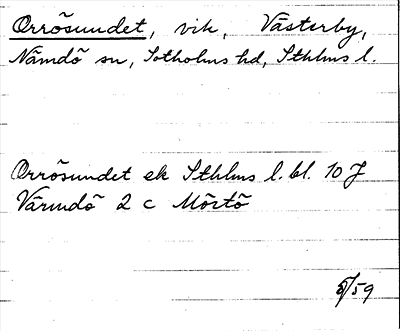 Orrösundet, vik, Västerby,
Nämdö sn, Sotholms hd, Sthlms l.
Orrösundet ek Sthlms l. bl. 10 J
Värmdö 2 c Mörtö
/59